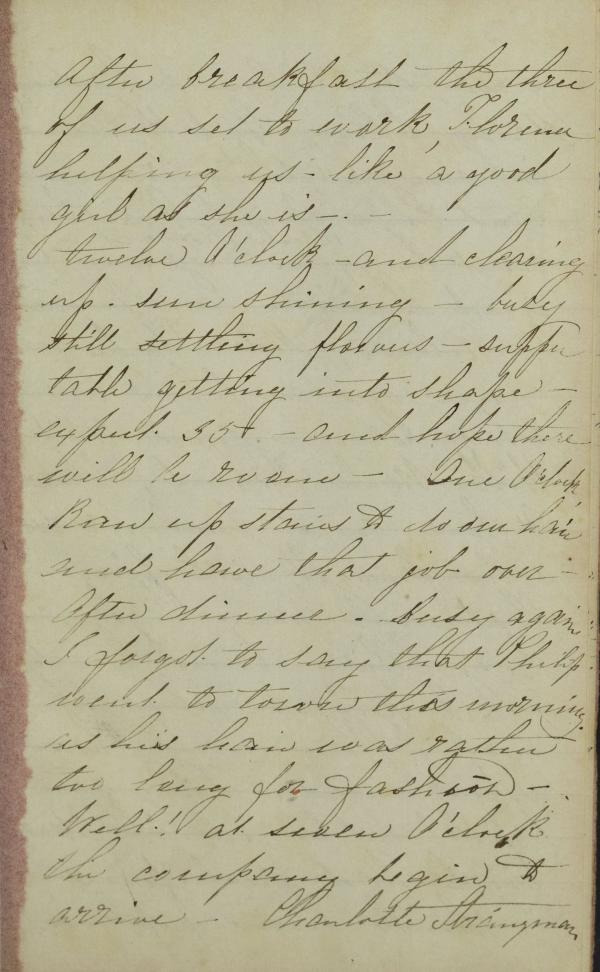 After breakfast the three
of us set to work, Florence
helping us - like a good
girl as she is -. -
twelve O'clock - and clearing
up. sun shining - busy
still settling flowers - supper
table getting into shape -
expect. 35 - and hope there
will be room - One O'clock
Ran up stairs to do our hair
and have that job over -
After dinner. Busy again
I forgot to say that Philip
went to town this morning.
as his hair was rather
too long for fashion -
Well! at seven O'clock
the company begin to
arrive - Charlotte Strangman